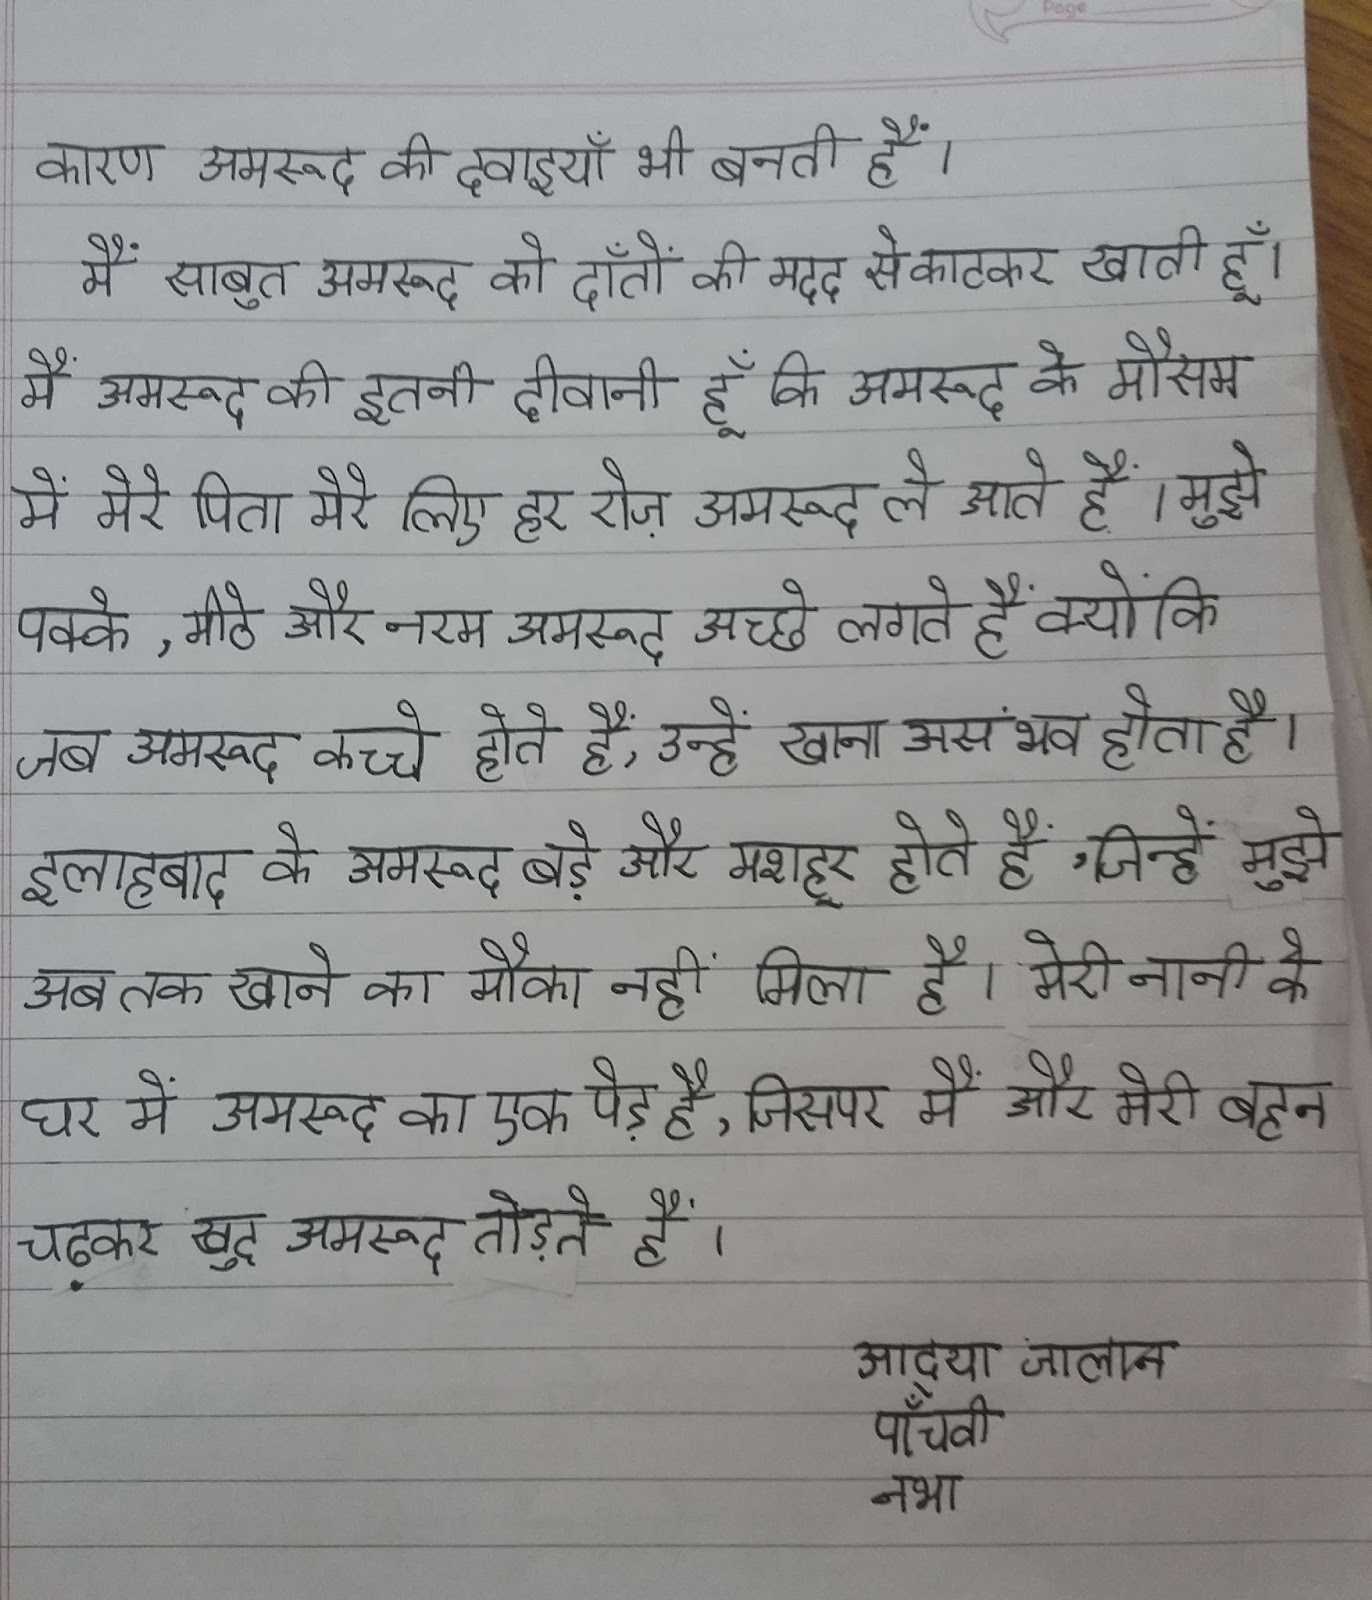 Page
कारण अमरूद की दवाइयाँ भी बनती हैं।
मैं साबुत अमरूद को दाँतों की मदद से काटकर खाती हूँ।
मैं अमरूद की इतनी दीवानी हूँ कि अमरूद के मौसम
में मेरे पिता मेरे लिए हर रोज़ अमरूद ले आते हैं । मुझे
पक्के , मीठे और नरम अमरूद अच्छे लगते हैं क्योंकि
जब अमरूद कच्चे होते हैं, उन्हें खाना असंभव होता है।
इलाहबाद के अमरूद बड़े और मशहूर होते हैं , जिन्हें मुझे
अब तक खाने का मौका नहीं मिला है । मेरी नानी के
घर में अमरूद का एक पेड़ है, जिसपर मैं और मेरी बहन
चढ़कर खुद अमरूद तोड़ते हैं ।
आद्या जालान
पाँचवी
नभा